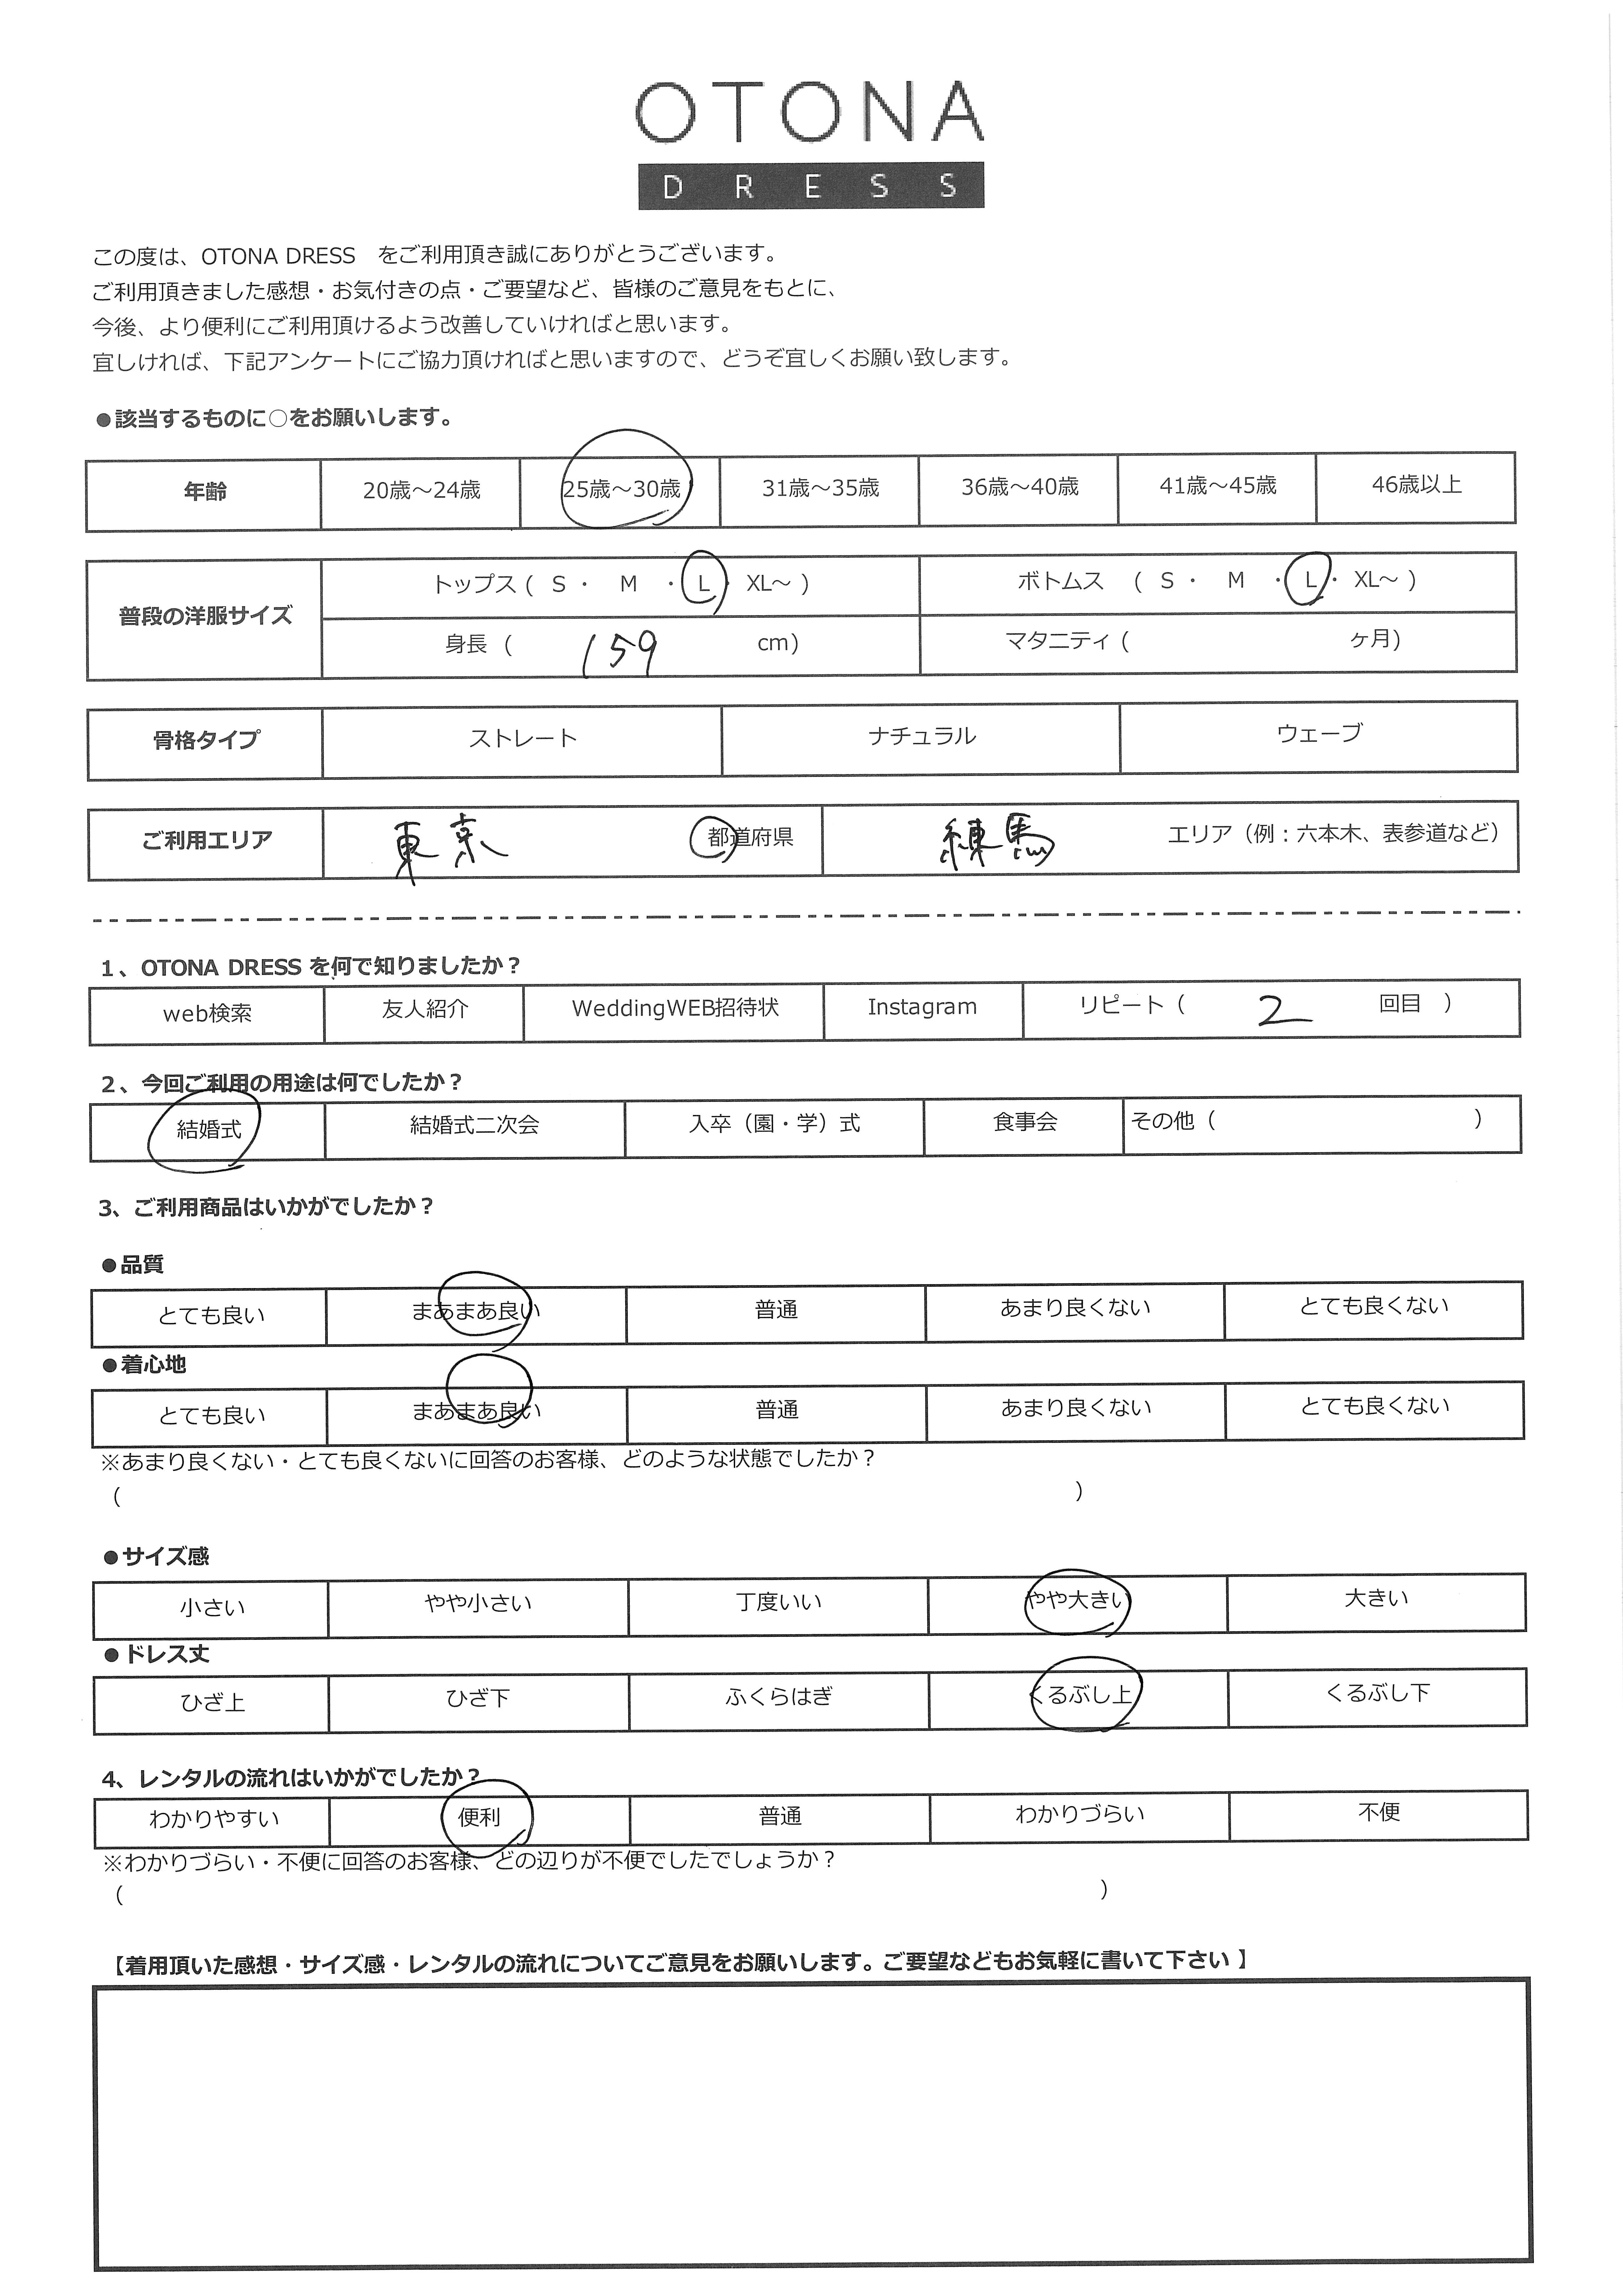 OTONA
DRESS
この度は、OTONA DRESS　をご利用頂き誠にありがとうございます。
ご利用頂きました感想・お気付きの点・ご要望など、皆様のご意見をもとに、
今後、より便利にご利用頂けるよう改善していければと思います。
宜しければ、下記アンケートにご協力頂ければと思いますので、どうぞ宜しくお願い致します。
●該当するものに○をお願いします。
年齢 20歳～24歳 25歳～30歳 31歳～35歳 36歳～40歳 41歳～45歳 46歳以上
普段の洋服サイズ トップス ( S ・ M ・ L ・ XL～ ) ボトムス ( S ・ M ・ L ・ XL～ )
身長 ( 159 cm) マタニティ ( ヶ月)
骨格タイプ ストレート ナチュラル ウェーブ
ご利用エリア 東京 都道府県 練馬 エリア（例：六本木、表参道など）
1、OTONA DRESS を何で知りましたか？
web検索 友人紹介 WeddingWEB招待状 Instagram リピート（ 2 回目 ）
2、今回ご利用の用途は何でしたか？
結婚式 結婚式二次会 入卒（園・学）式 食事会 その他（ ）
3、ご利用商品はいかがでしたか？
●品質
とても良い まあまあ良い 普通 あまり良くない とても良くない
●着心地
とても良い まあまあ良い 普通 あまり良くない とても良くない
※あまり良くない・とても良くないに回答のお客様、どのような状態でしたか？
（ ）
●サイズ感
小さい やや小さい 丁度いい やや大きい 大きい
●ドレス丈
ひざ上 ひざ下 ふくらはぎ くるぶし上 くるぶし下
4、レンタルの流れはいかがでしたか？
わかりやすい 便利 普通 わかりづらい 不便
※わかりづらい・不便に回答のお客様、どの辺りが不便でしたでしょうか？
（ ）
【着用頂いた感想・サイズ感・レンタルの流れについてご意見をお願いします。ご要望などもお気軽に書いて下さい 】